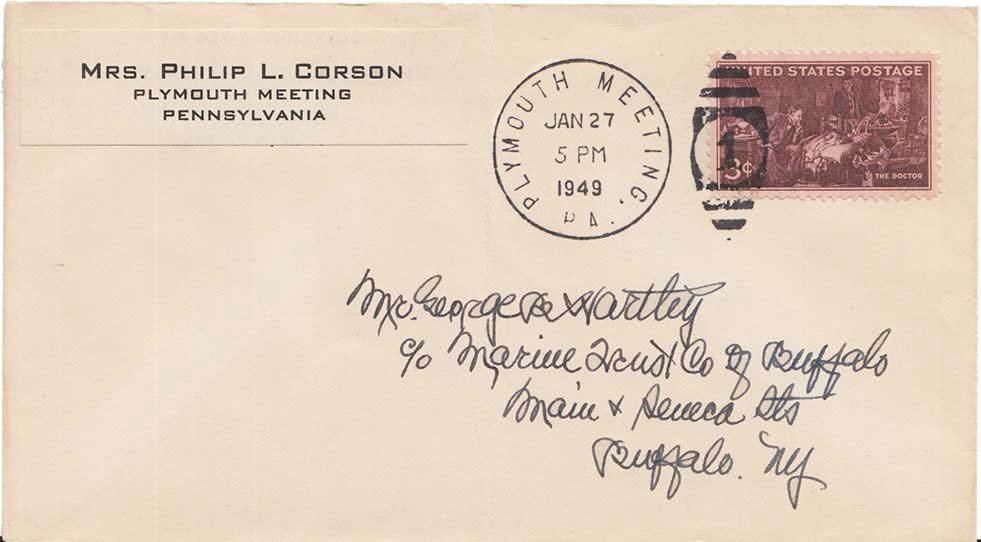 MRS. PHILIP L. CORSON
PLYMOUTH MEETING
PENNSYLVANIA
PLYMOUTH MEETING, PA.
JAN 27
5 PM
1949
1
UNITED STATES POSTAGE
3¢
THE DOCTOR
Mr. George Hartley
c/o Marine Trust Co of Buffalo
Main & Seneca Sts
Buffalo. NY